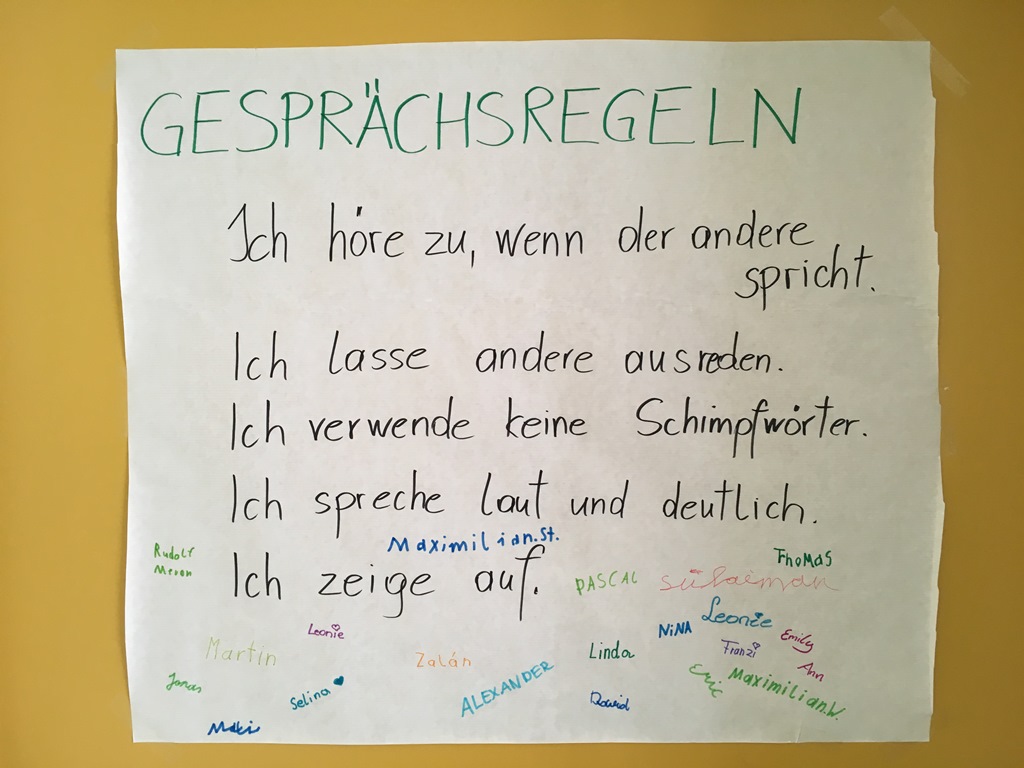 GESPRÄCHSREGELN
Ich höre zu, wenn der andere
spricht.
Ich lasse andere ausreden.
Ich verwende keine Schimpfwörter.
Ich spreche laut und deutlich.
Maximilian.St.
Rudolf
Meron
Ich zeige auf.
THOMAS
PASCAL
sülaiman
Leonie
NiNA
Leonie
Emily
Martin
Zalán
Linda
Franzi
Ann
Jonas
Selina
ALEXANDER
Eric
Maximilian.W.
David